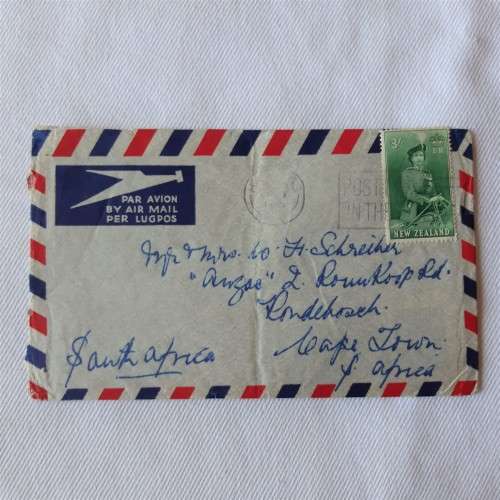 PAR AVION
BY AIR MAIL
PER LUGPOS
POST
IN TH
3/-
E II R
NEW ZEALAND
Mr & Mrs. W. H. Schreiber
"Anzac" 2. Rouwkoop Rd.
Rondebosch.
Cape Town.
S. Africa
South Africa